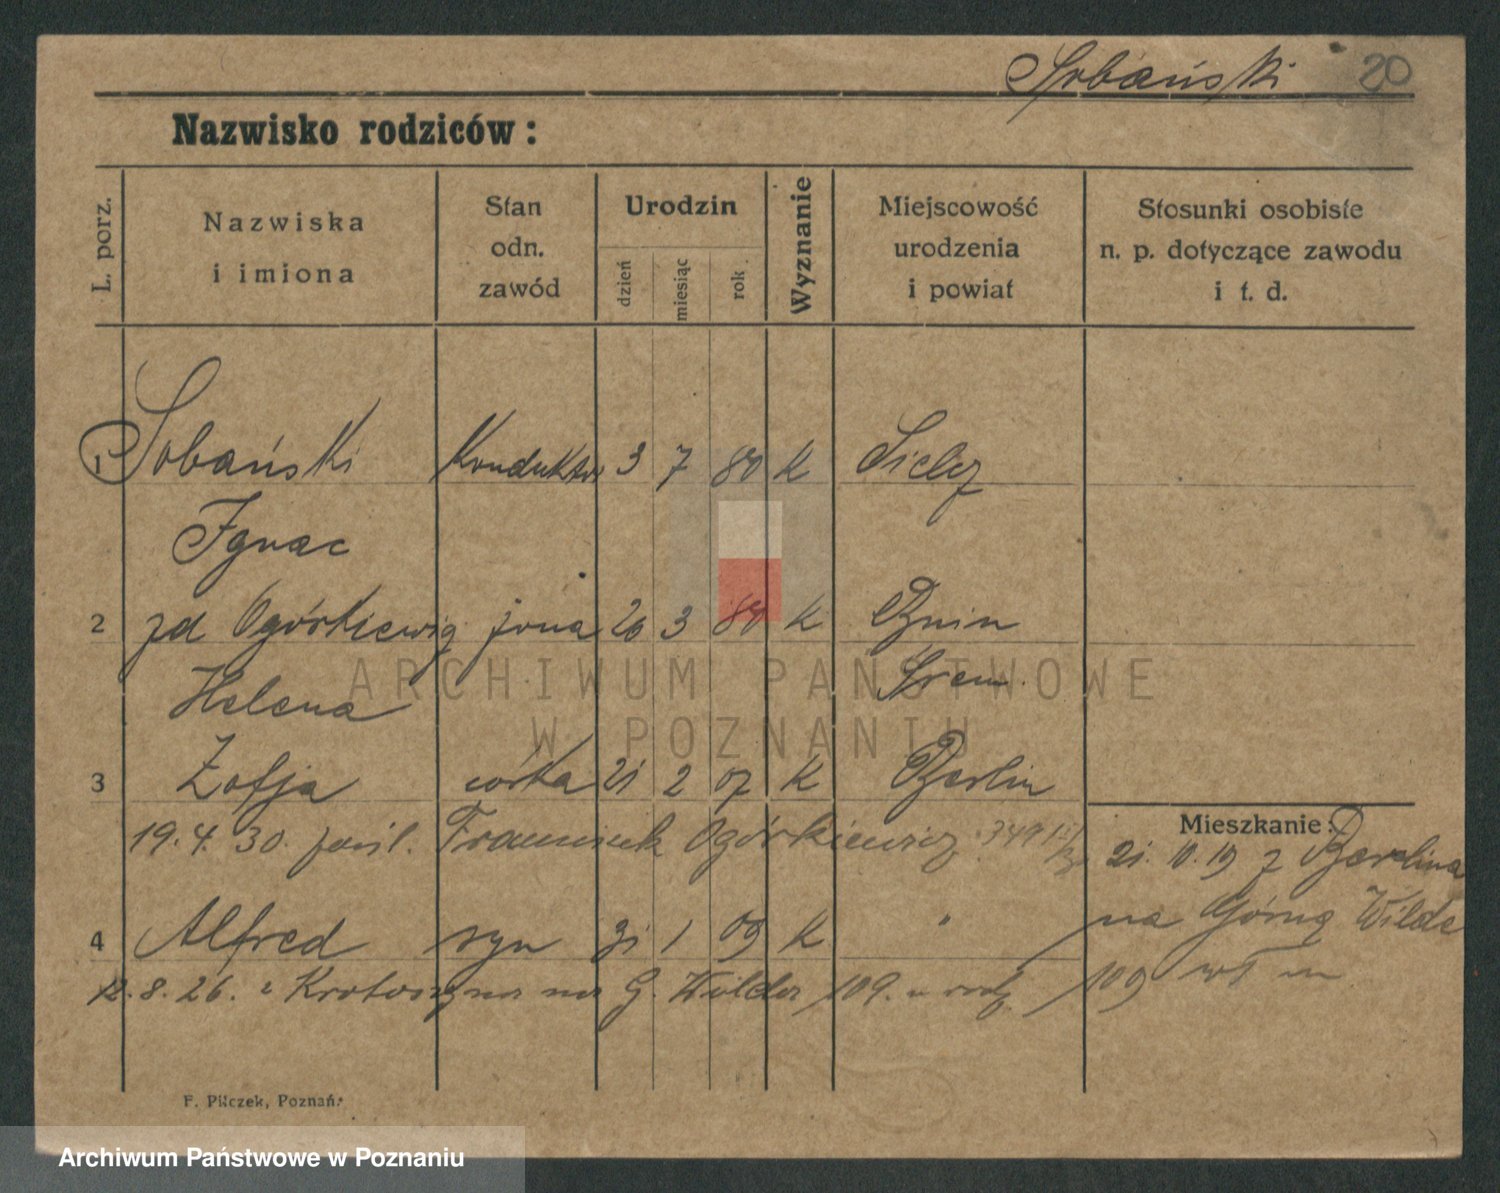 Sobański 20
Nazwisko rodziców:
L. porz.
Nazwiska
i imiona
Stan
odn.
zawód
Urodzin
dzień
miesiąc
rok
Wyznanie
Miejscowość
urodzenia
i powiat
Stosunki osobiste
n. p. dotyczące zawodu
i t. d.
1 Sobański Konduktor 3 7 80 K
Ignac
2 zd Ogórkiewicz żona 26 3 80 K Bnin
Helena Śrem
3 Zofja córka 21 2 07 K Berlin
19.4.30. Franciszek Ogórkiewicz
Mieszkanie:
21.10.19 z Berlina
4 Alfred syn 31 1 09 K "
na Górną Wildę
12.8.26. z Krotoszyna na G. Wilda 109.
109
F. Pilczek, Poznań.
ARCHIWUM PAŃSTWOWE
W POZNANIU
Archiwum Państwowe w Poznaniu